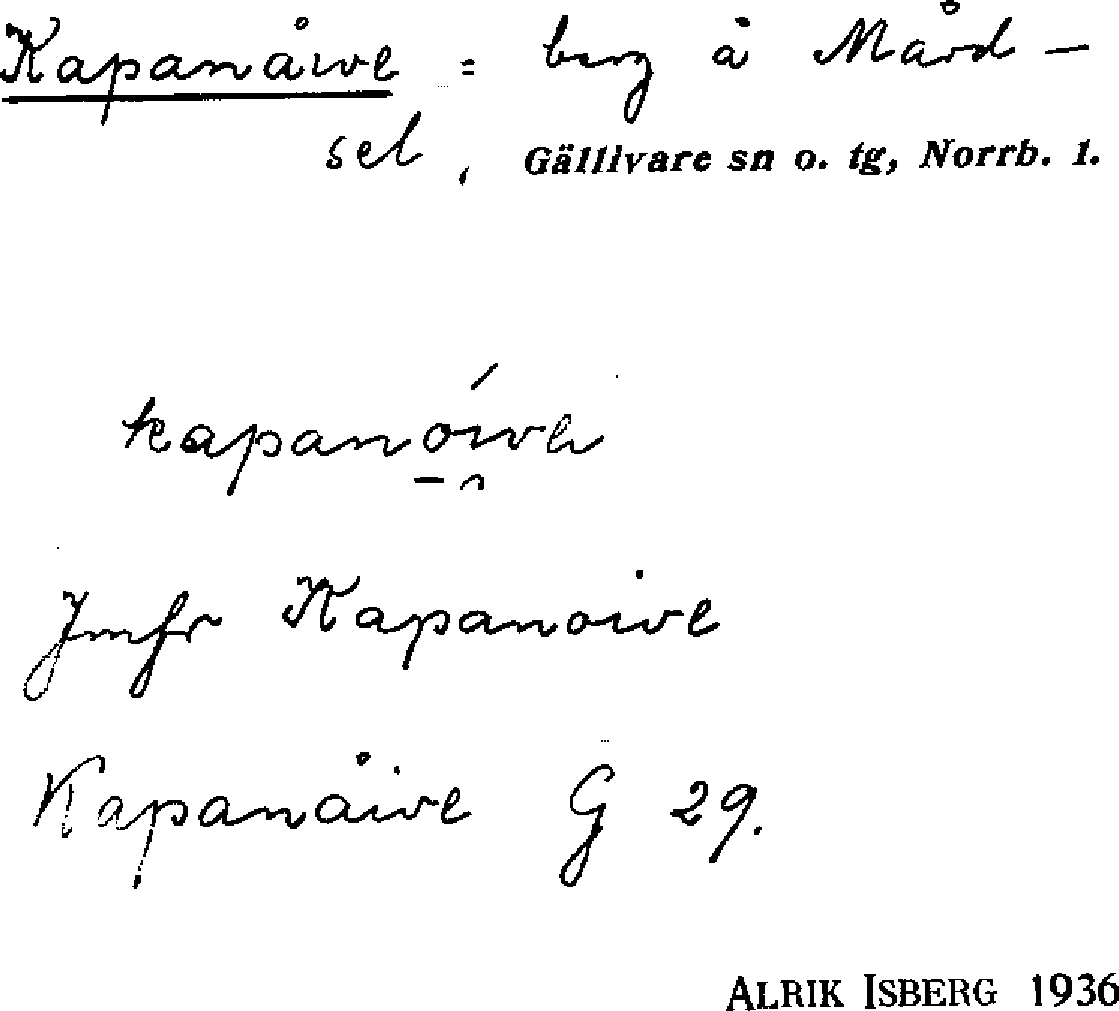 Kapanåive = berg å Mård-
sel, Gällivare sn o. tg, Norrb. l.
kapanói̯vɛ
Jmfr Kapanoive
Kapanåive G 29.
ALRIK ISBERG 1936